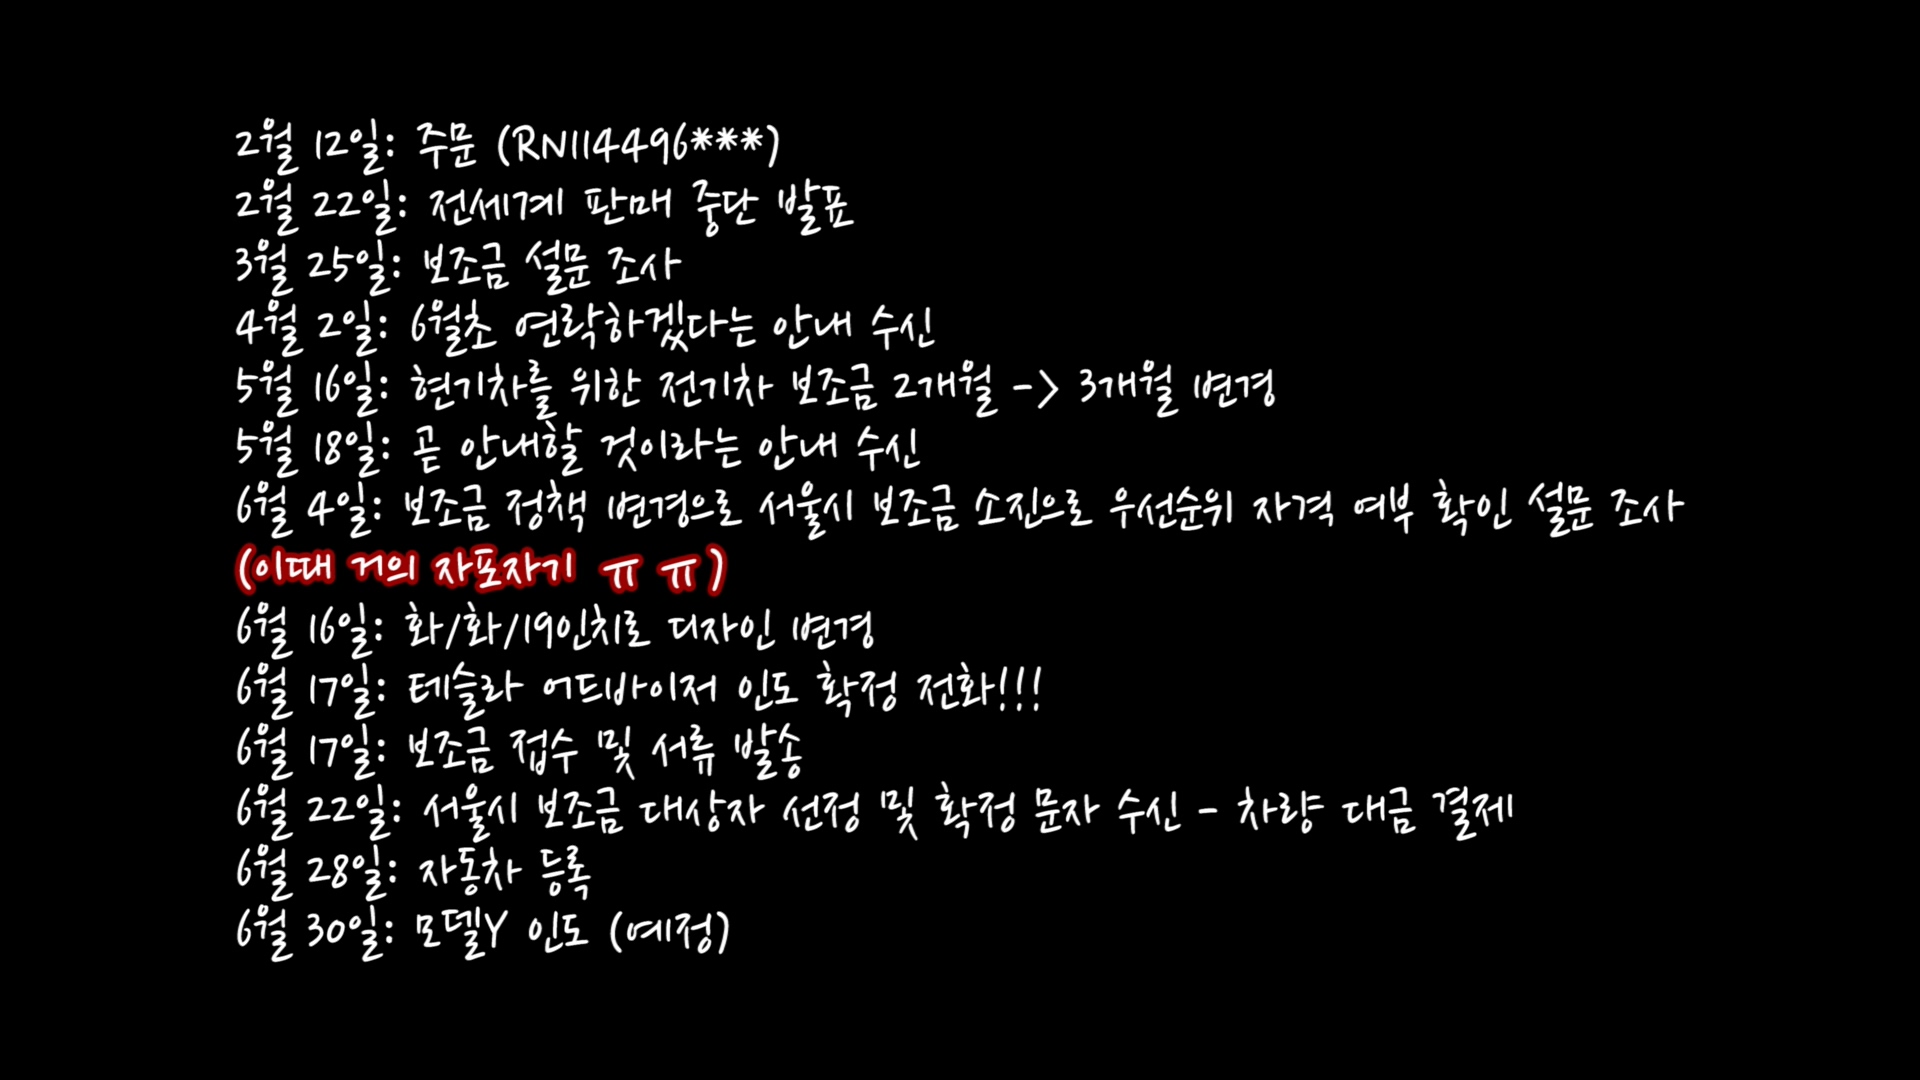 2월 12일: 주문 (RN114496***)
2월 22일: 전세계 판매 중단 발표
3월 25일: 보조금 설문 조사
4월 2일: 6월초 연락하겠다는 안내 수신
5월 16일: 현기차를 위한 전기차 보조금 2개월 -> 3개월 변경
5월 18일: 곧 안내할 것이라는 안내 수신
6월 4일: 보조금 정책 변경으로 서울시 보조금 소진으로 우선순위 자격 여부 확인 설문 조사
(이때 거의 자포자기 ㅠㅠ)
6월 16일: 화/화/19인치로 디자인 변경
6월 17일: 테슬라 어드바이저 인도 확정 전화!!!
6월 17일: 보조금 접수 및 서류 발송
6월 22일: 서울시 보조금 대상자 선정 및 확정 문자 수신 - 차량 대금 결제
6월 28일: 자동차 등록
6월 30일: 모델Y 인도 (예정)